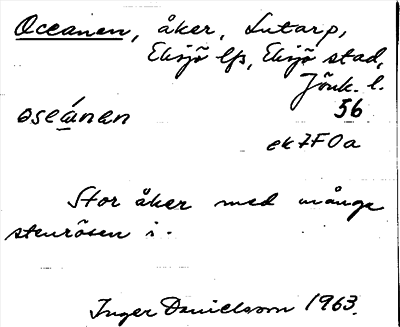 Oceanen, åker, Lutarp,
Eksjö lfs, Eksjö stad,
Jönk. l.
oseánan 56
ek 7F0a
Stor åker med många
stenrösen i.
Inger Danielsson 1963.